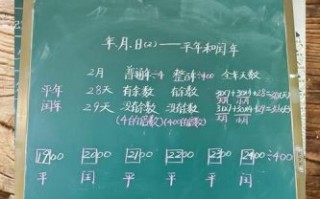 年、月、日(2)——平年和闰年
2月 普通年÷4 整百年÷400 全年天数
平年 28天 有余数 有余数
闰年 29天 没余数 没余数
(4的倍数) (400的倍数)
1900 2000 2100 2200 2300 2400 ÷400
平 闰 平 平 平 闰